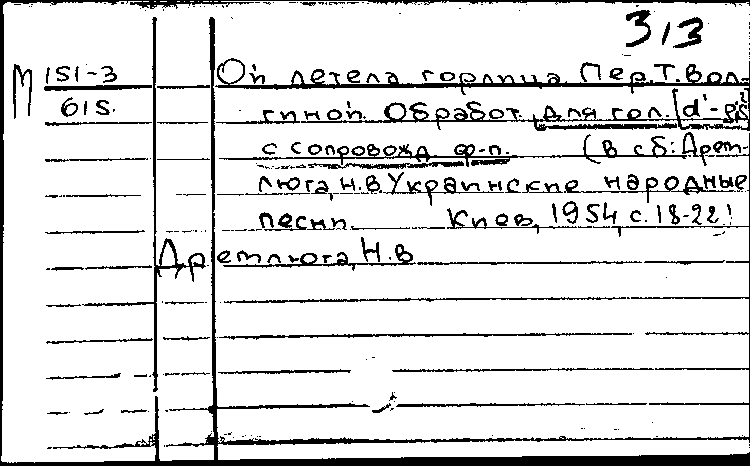 313
М 151-3 Ой летела горлица. Пер. Т. Вол-
615. гиной. Обработ. для гол. [d'-
с сопровожд. ф-п. (В сб: Дрет-
люга, Н.В. Украинские народные
песни. Киев, 1954, с. 18-22)
Дретлюга, Н.В